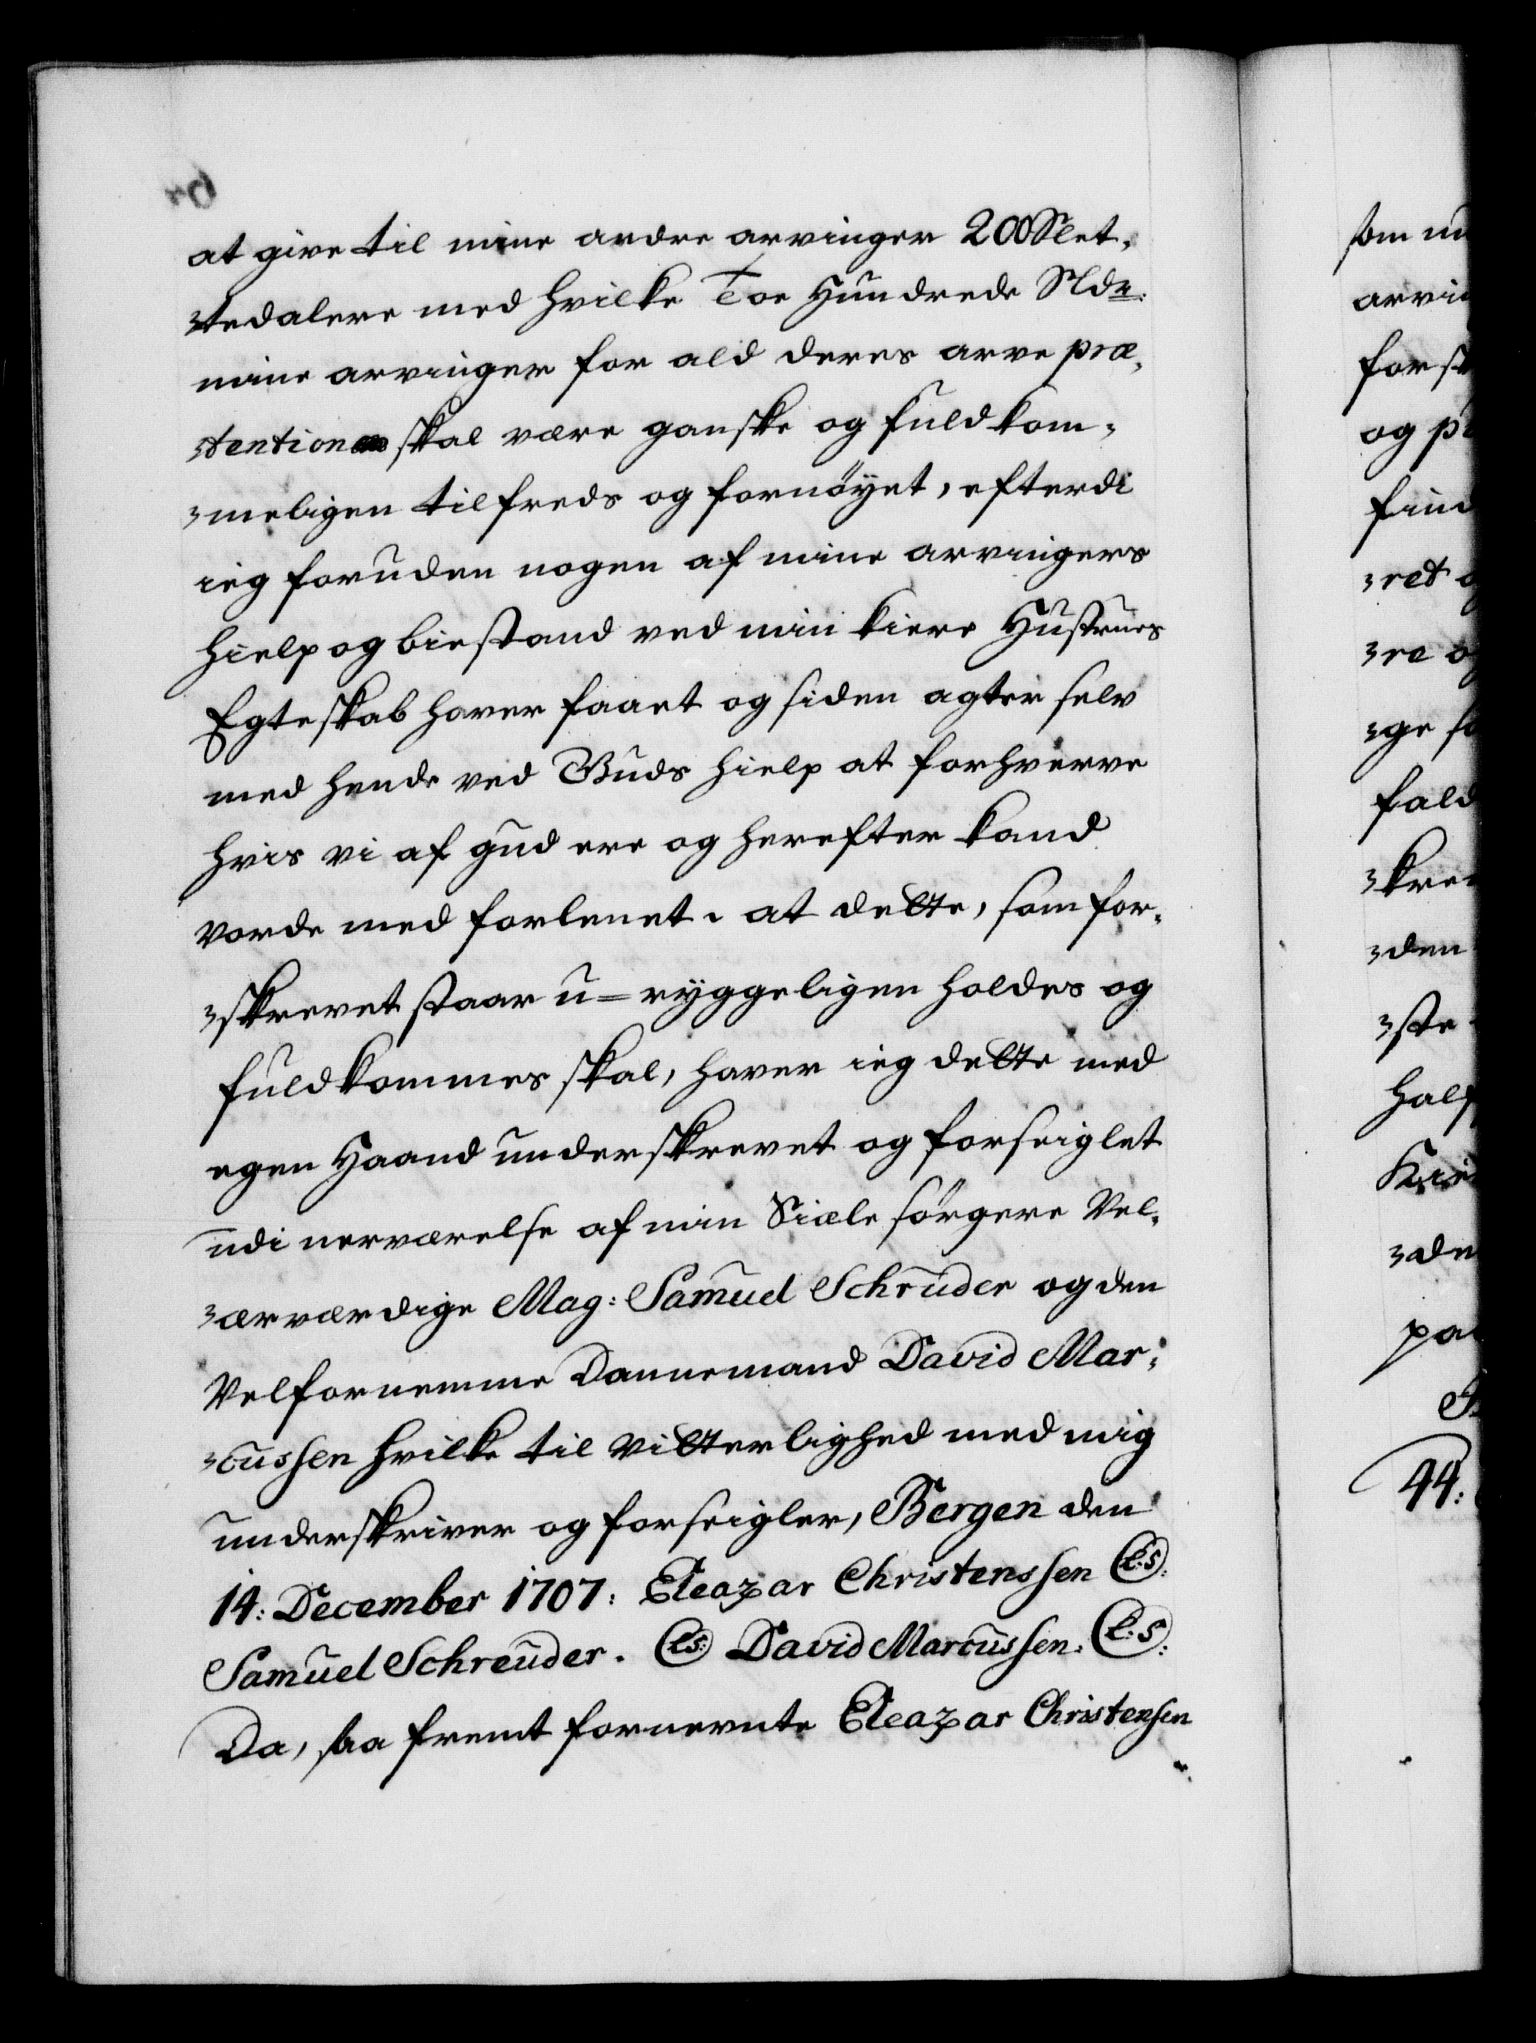 at give til mine andre arvinger 200 Slet,
tedalere med hvilke Toe Hundrede Sldr:
mine arvinger for ald deres arve præ,
tention skal være ganske og fuldkom,
meligen tilfreds og fornöyet, efterdi
ieg foruden nogen af mine arvingers
hielp og biestand ved min kiere Hustrues
Egteskab haver faaet og siden agter selv
med hende ved Guds hielp at forhverve
hvis vi af gud ere og herefter kand
vorde med forlenet. at dette, som for,
skrevet staar u=ryggeligen holdes og
fuldkommes skal, haver ieg dette med
egen Haand underskrevet og forseiglet
udi nerværelse af min Siæle sörgere Vel,
ærværdige Mag: Samuel Schruder og den
Velfornemme Dannemand David Mar,
cussen hvilke til Vitterlighed med mig
underskriver og forseigler, Bergen den
14: December 1707: Eleazar Christenssen L:S:
Samuel Schreuder. LS: David Marcussen. L:S:
Da, saa fremt fornevnte Eleazar Christensen
som
arvi
for
og
find
ret
re
ge
fald
kre
den
ste
half
de
44: